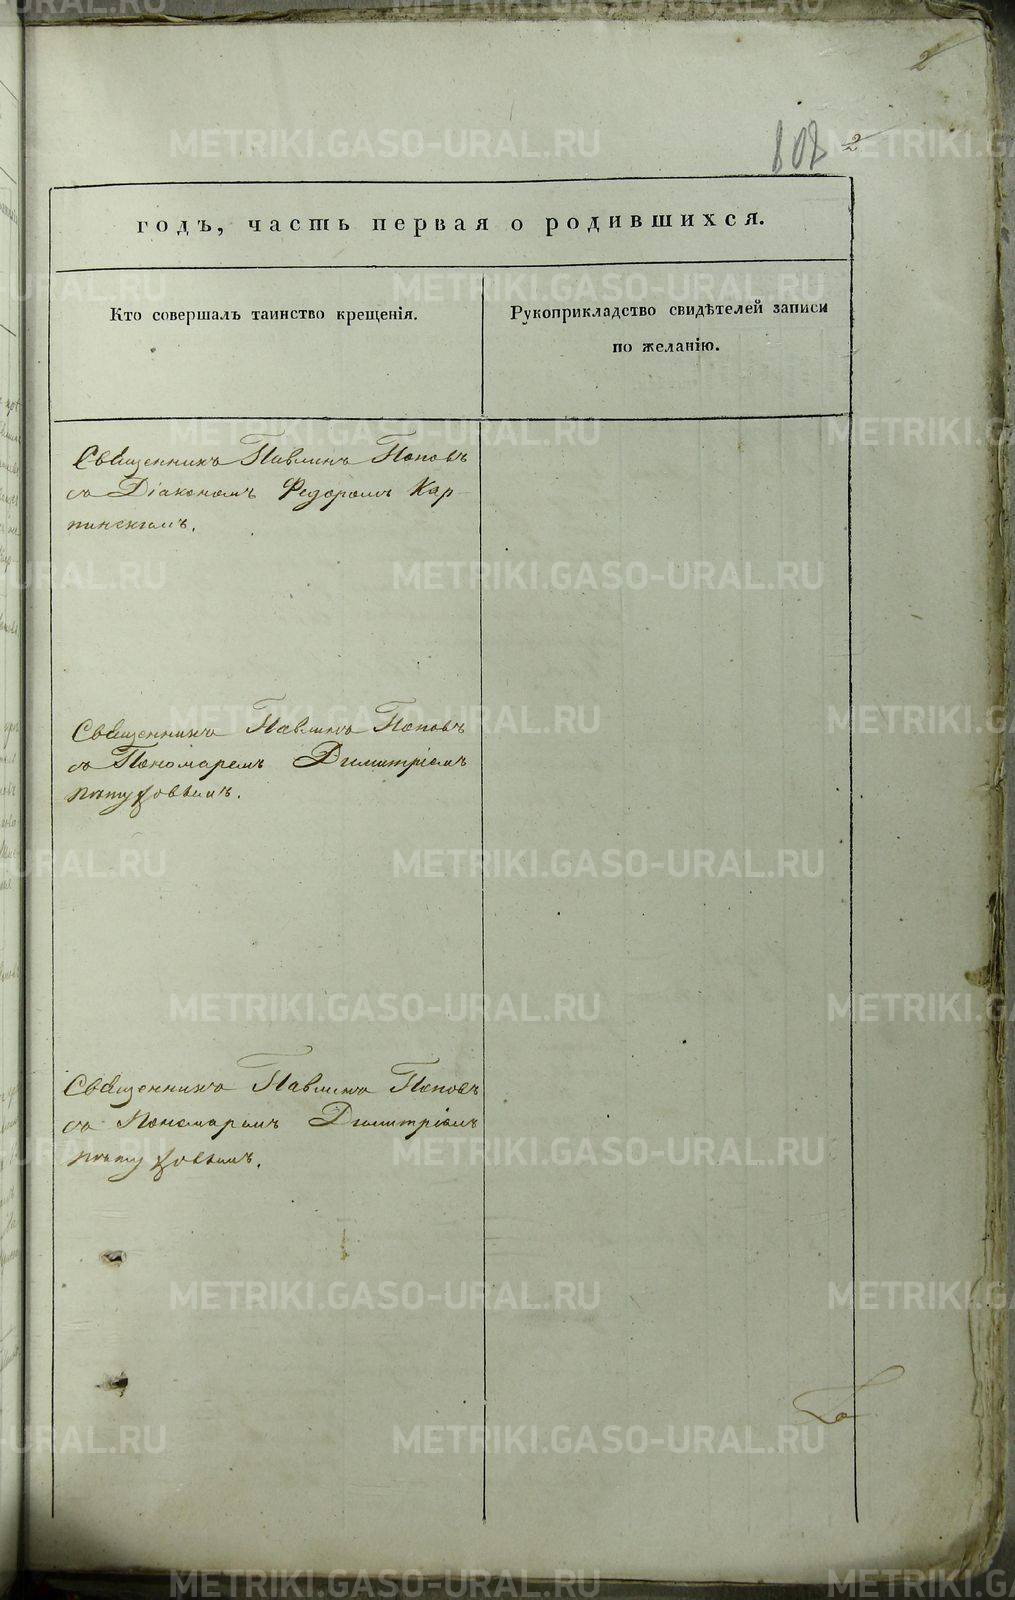 2
108 2
годъ, часть первая о родившихся.
Кто совершалъ таинство крещенія.
Рукоприкладство свидѣтелей записи
по желанію.
Священникъ Павлинъ Поповъ
съ Діакономъ Федоромъ Кар-
пинскимъ.
Священникъ Павлинъ Поповъ
съ Пономаремъ Димитріемъ
Пѣтуховымъ.
Священникъ Павлинъ Поповъ
съ Пономаремъ Димитріемъ
Пѣтуховымъ.
METRIKI.GASO-URAL.RU